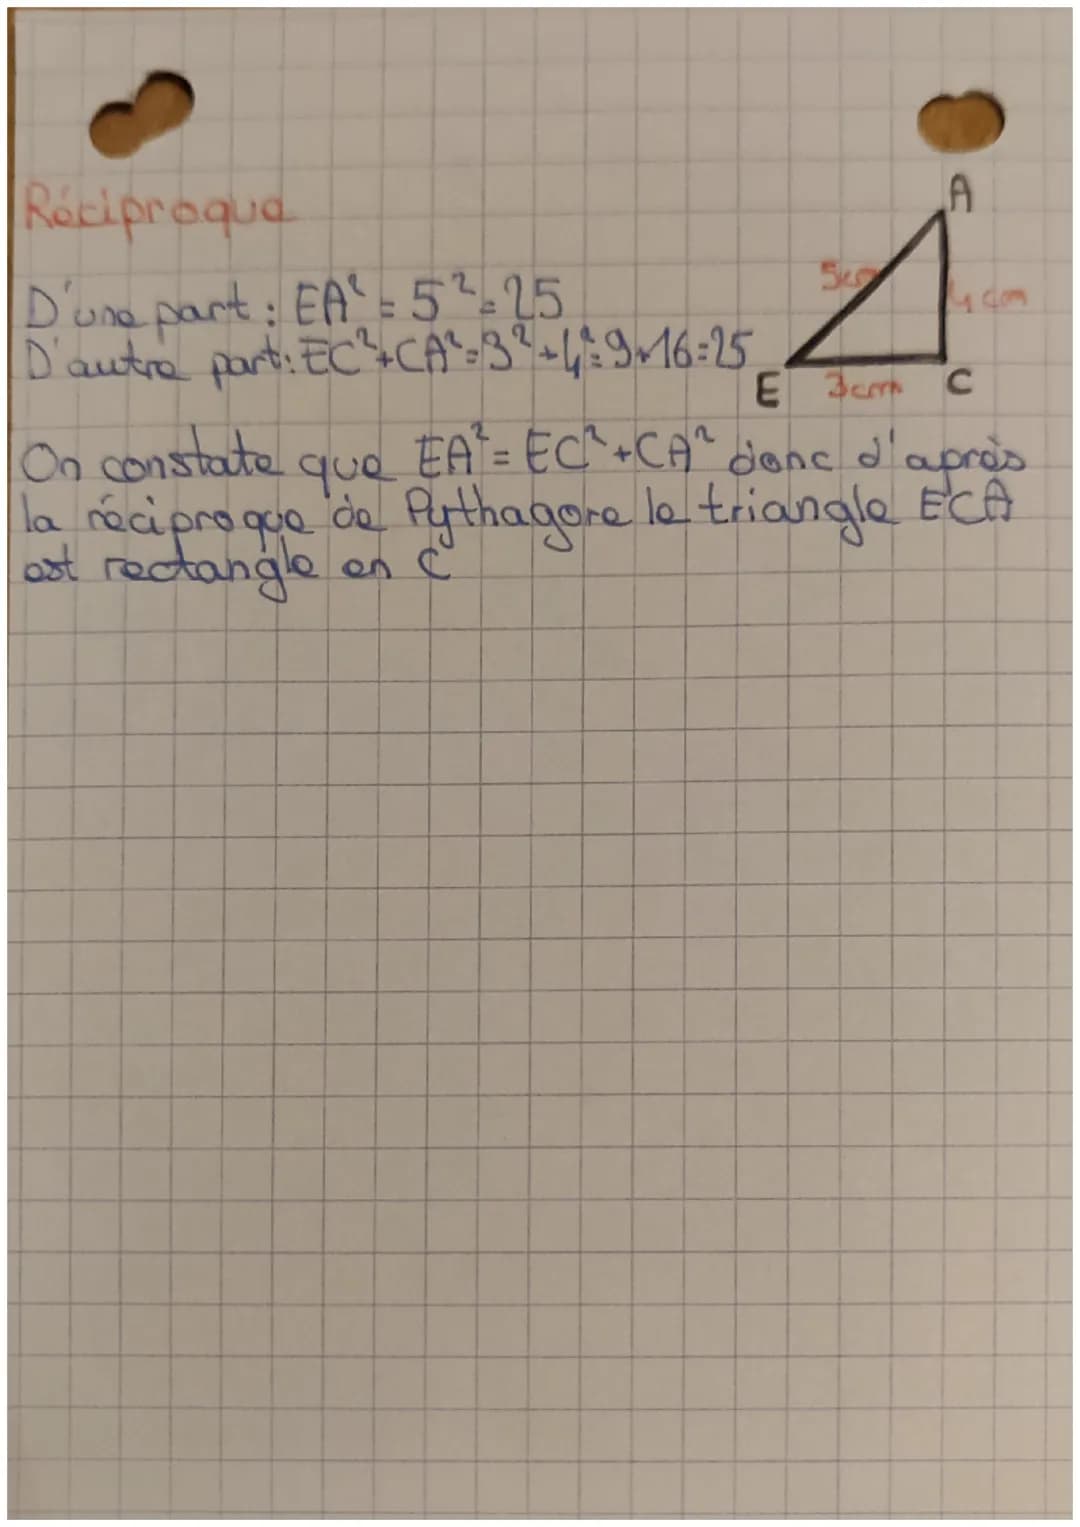 Réciproque
A
5cm
4 cm
D'une part : EA² = 5² = 25
D'autre part : EC²+CA²=3²+4²=9+16=25
E 3cm C
On constate que EA² = EC²+CA² donc d'après
la réciproque de Pythagore le triangle ECA
est rectangle en C